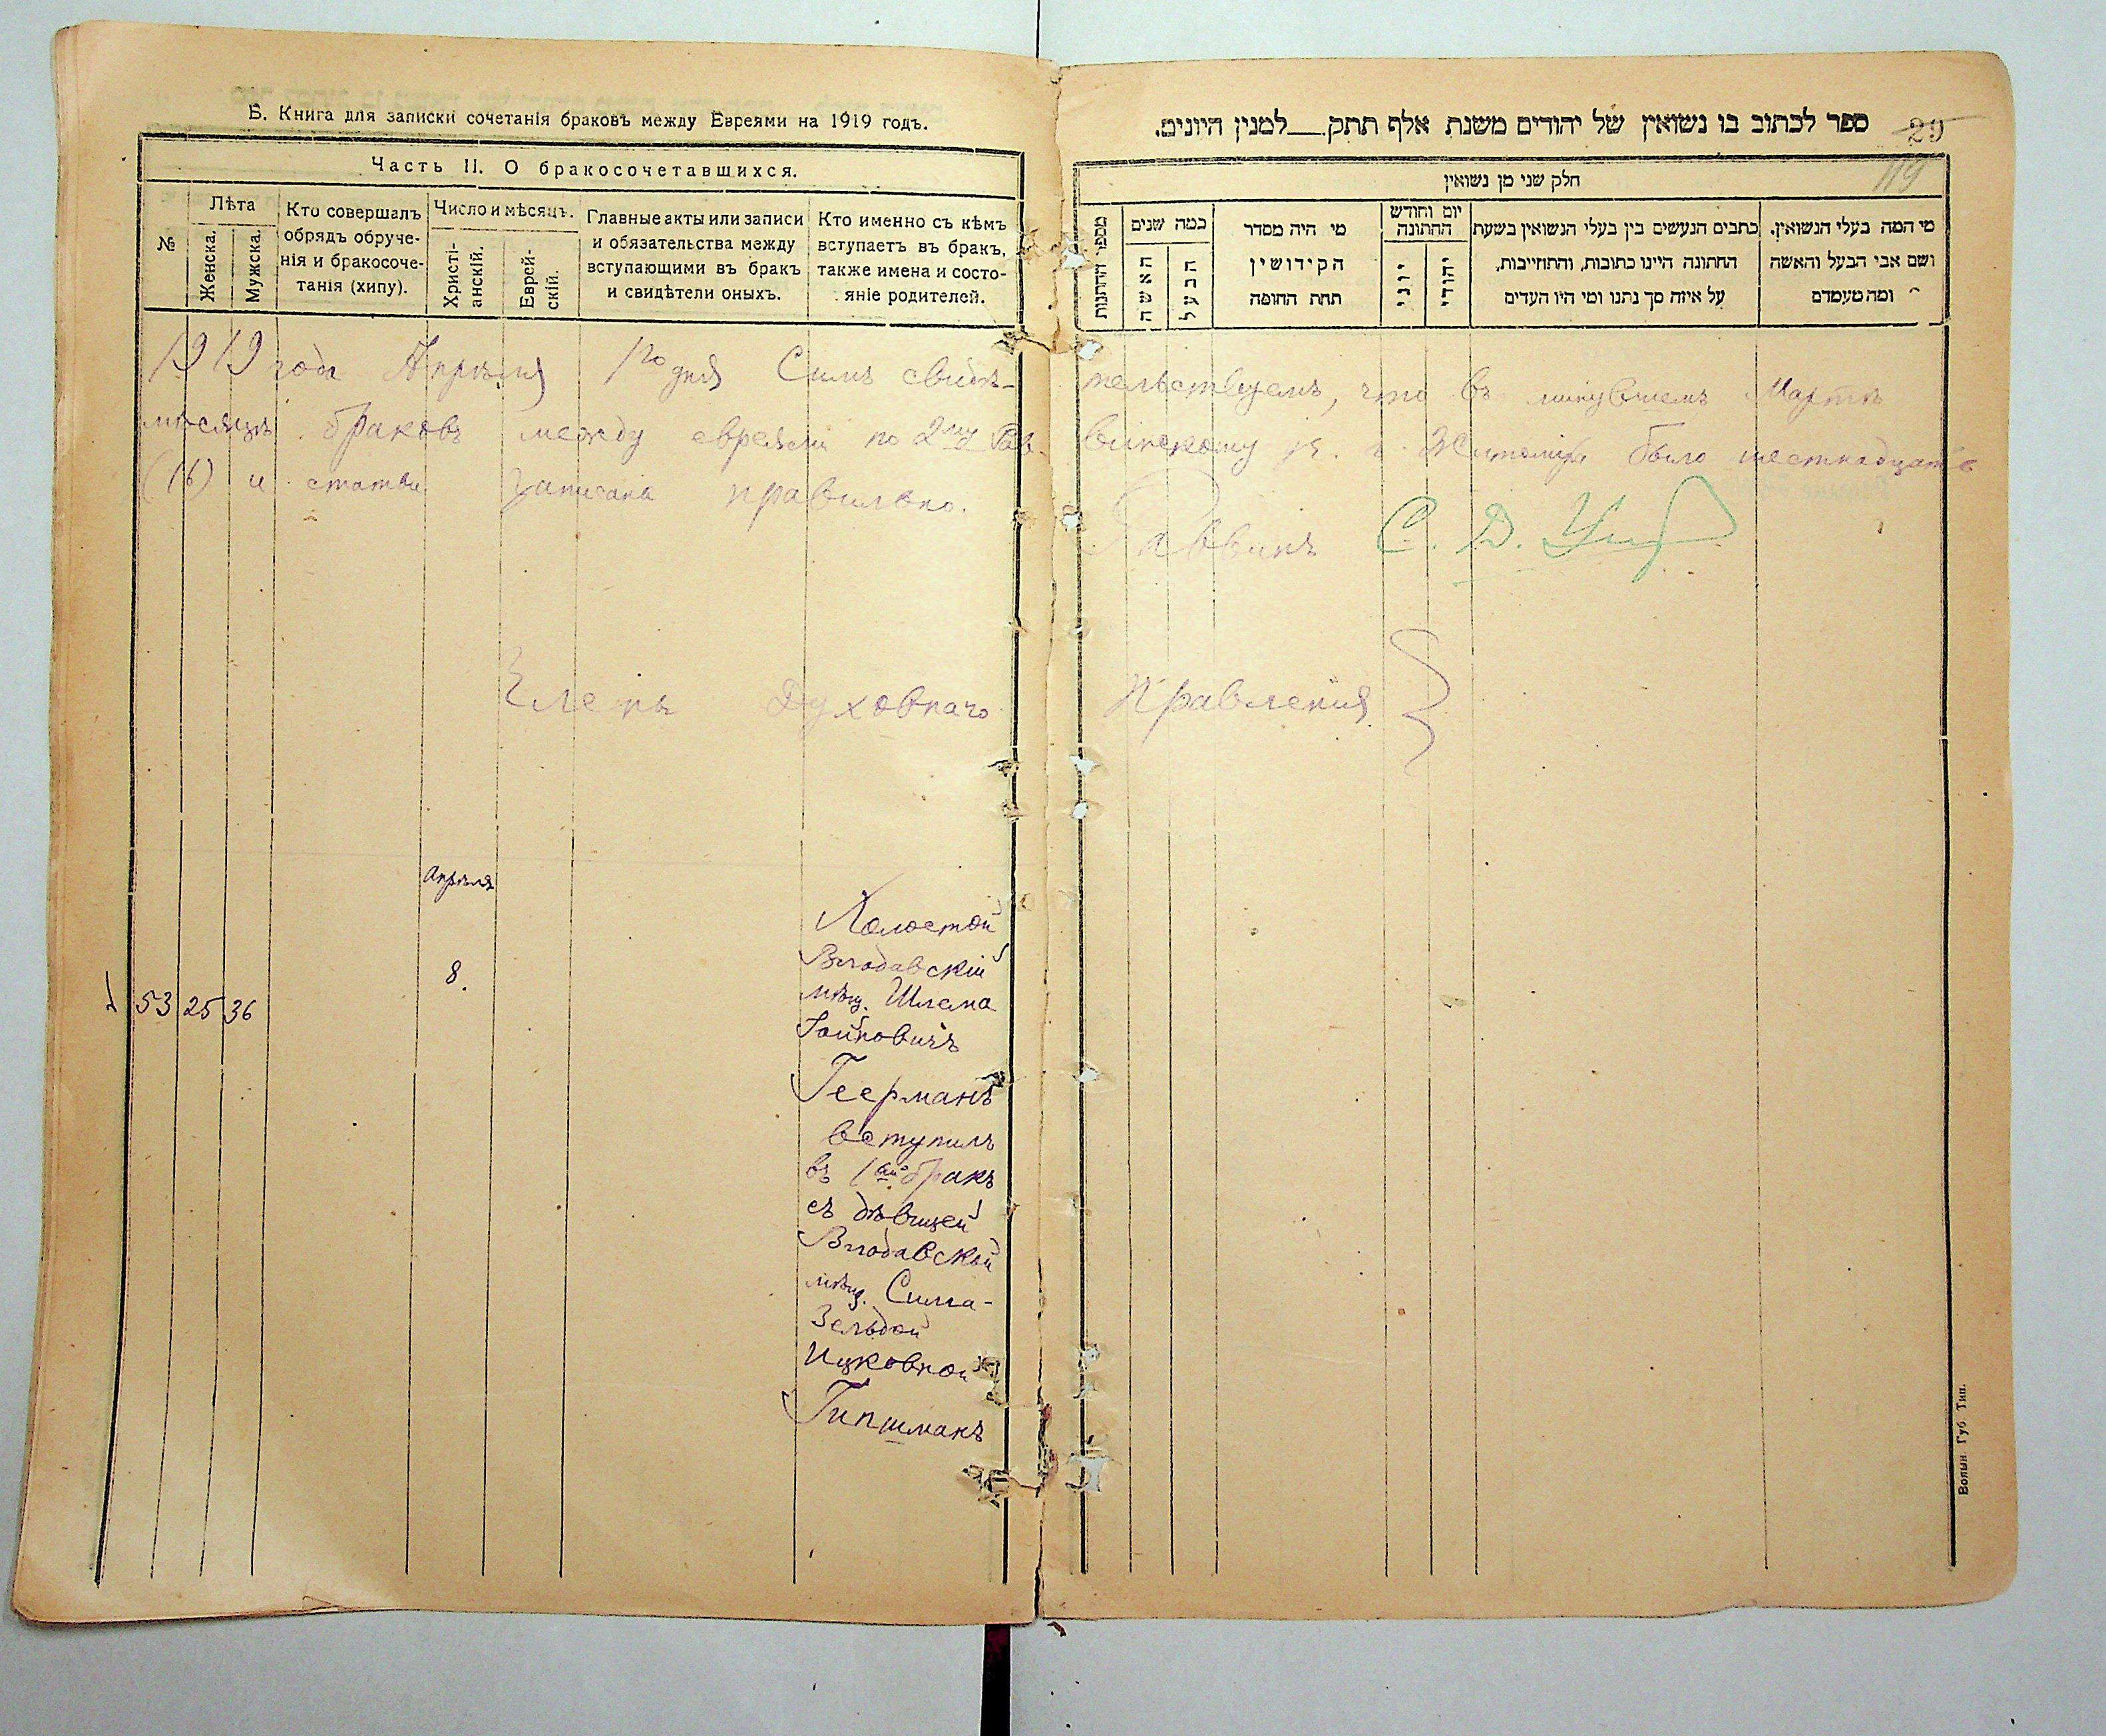 Б. Книга для записки сочетанія браковъ между Евреями на 1919 годъ.
Часть II. О бракосочетавшихся.
№
Лѣта
Женска.
Мужска.
Кто совершалъ
обрядъ обруче-
нія и бракосоче-
танія (хипу).
Число и мѣсяцъ.
Христі-
анскій.
Еврей-
скій.
Главные акты или записи
и обязательства между
вступающими въ бракъ
и свидѣтели оныхъ.
Кто именно съ кѣмъ
вступаетъ въ бракъ,
также имена и состо-
яніе родителей.
ספר לכתוב בו נשואין של יהודים משנת אלף תתק__למנין היונים.
29
119
חלק שני מן נשואין
מספר החתונות
כמה שנים
האשה
הבעל
מי היה מסדר
הקידושין
תחת החופה
יום וחודש
החתונה
יוני
יהודי
כתבים הנעשים בין בעלי הנשואין בשעת
החתונה היינו כתובות, והתחייבות,
על איזה סך נתנו ומי היו העדים
מי המה בעלי הנשואין.
ושם אבי הבעל והאשה
ומה מעמדם
1919 года Апрѣля 1го дня Симъ свидѣ-тельствуемъ, что въ минувшемъ Мартѣ
мѣсяцѣ браковъ между евреями по 2му Рав-винскому г. Житоміра было шестнадцать
(16) и статьи записана правильно.
Раввинъ С. Д.
Членъ Духовнаго Правленія
Апрѣля
53 25 36
8.
Холостой
Влодавскій
мѣщ. Шлема
Іойновичъ
Геерманъ
вступилъ
въ 1ый бракъ
съ дѣвицей
Влодавской
мѣщ. Сима-
Зельдой
Ицковной
Гипшманъ
Волын Губ Тип.